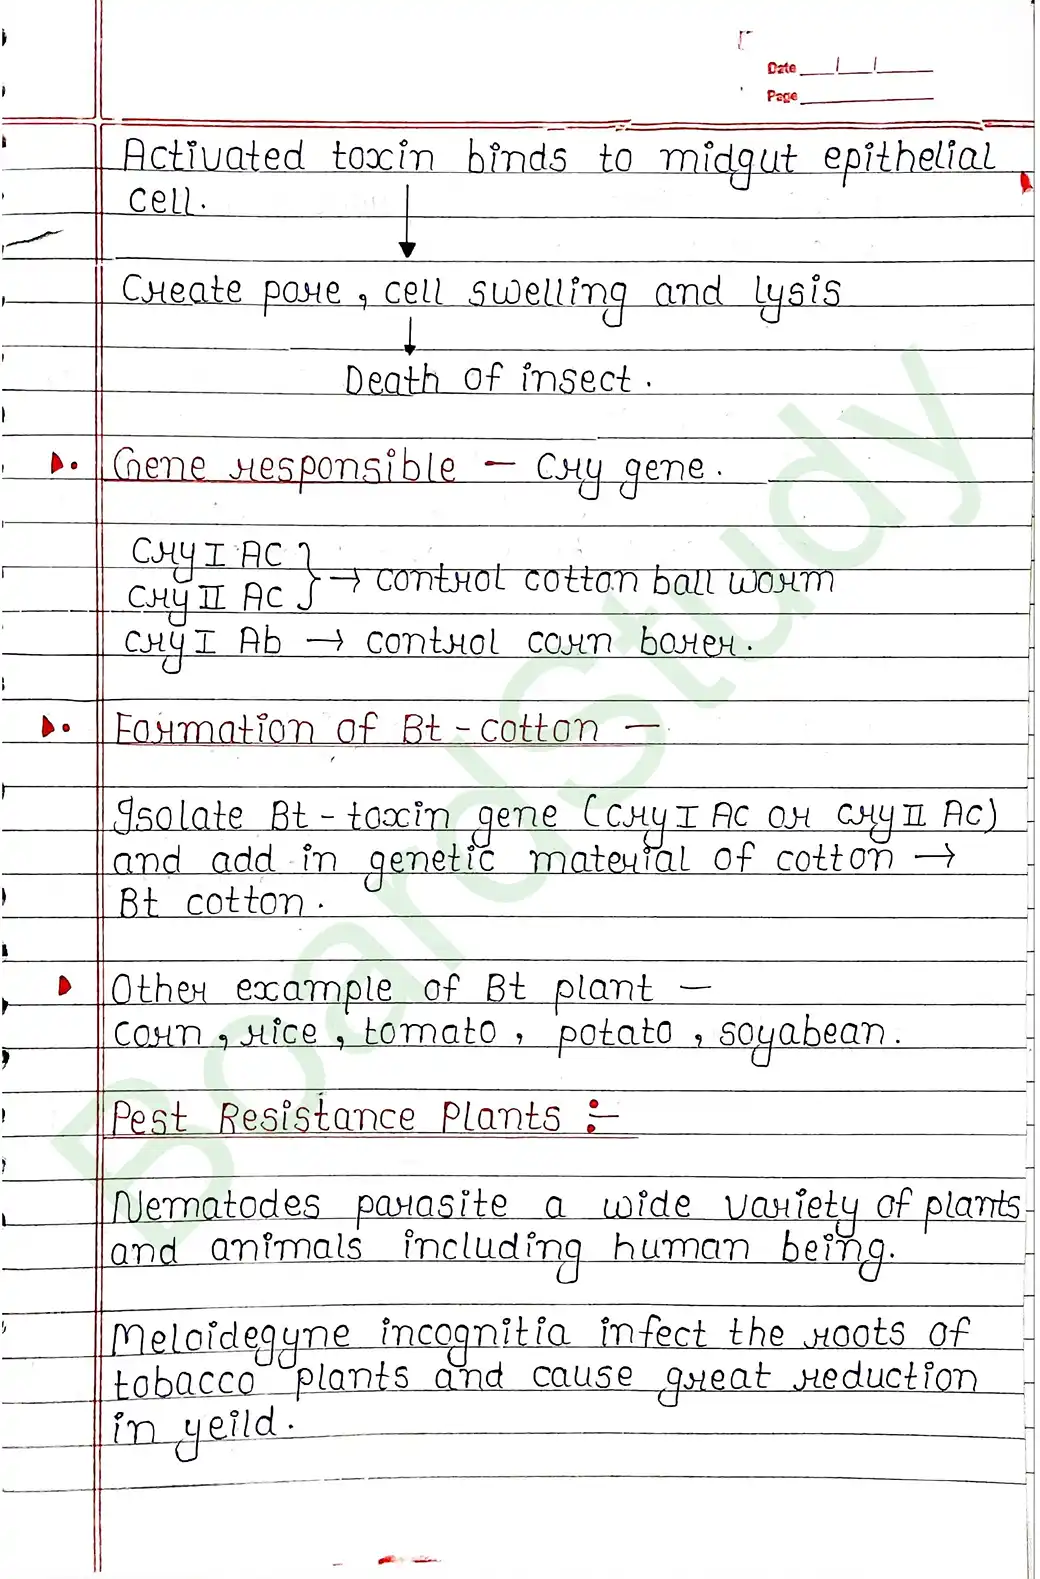 Date
Page
Activated toxin binds to midgut epithelial
cell.
Create pore, cell swelling and lysis
Death of insect.
Gene responsible - Cry gene.
Cry I AC
Cry II AC } → control cotton ball worm
Cry I Ab → control corn borer.
Formation of Bt - cotton -
Isolate Bt - toxin gene (Cry I AC or Cry II AC)
and add in genetic material of cotton →
Bt cotton.
Other example of Bt plant -
Corn, rice, tomato, potato, soyabean.
Pest Resistance Plants :-
Nematodes parasite a wide variety of plants
and animals including human being.
Meloidegyne incognitia infect the roots of
tobacco plants and cause great reduction
in yeild.
BoardStudy